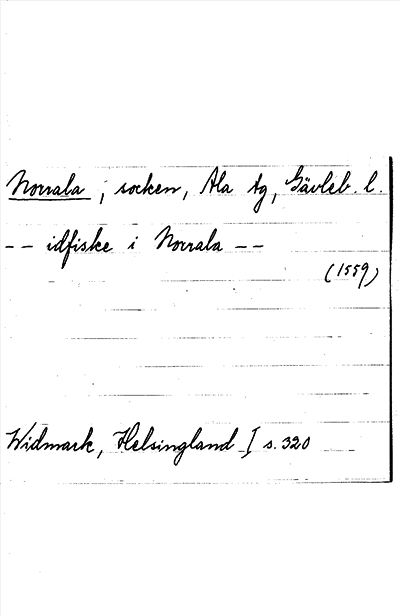 Norrala, socken, Ala tg, Gävleb. l.
-- idfiske i Norrala --
(1559)
Widmark, Helsingland I s. 320